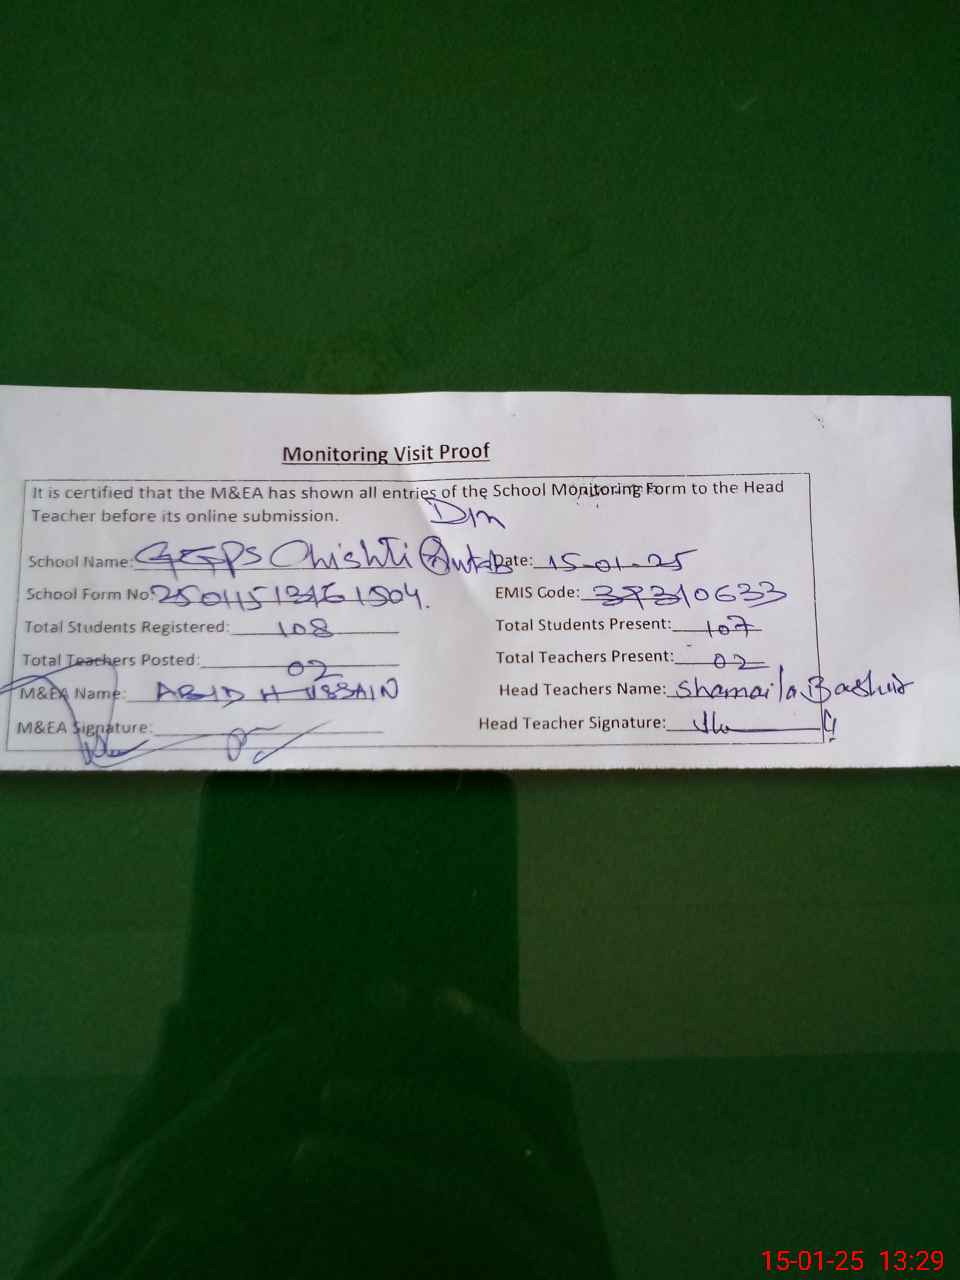 Monitoring Visit Proof
It is certified that the M&EA has shown all entries of the School Monitoring Form to the Head
Teacher before its online submission.
Din
School Name: GGPS Chishti Qutab Date: 15-01-25
School Form No: EMIS Code: 37310633
Total Students Registered: 108 Total Students Present: 107
Total Teachers Posted: 02 Total Teachers Present: 02
M&EA Name: ABID HUSSAIN Head Teachers Name: Shamaila Bashir
M&EA Signature: Head Teacher Signature:
15-01-25 13:29